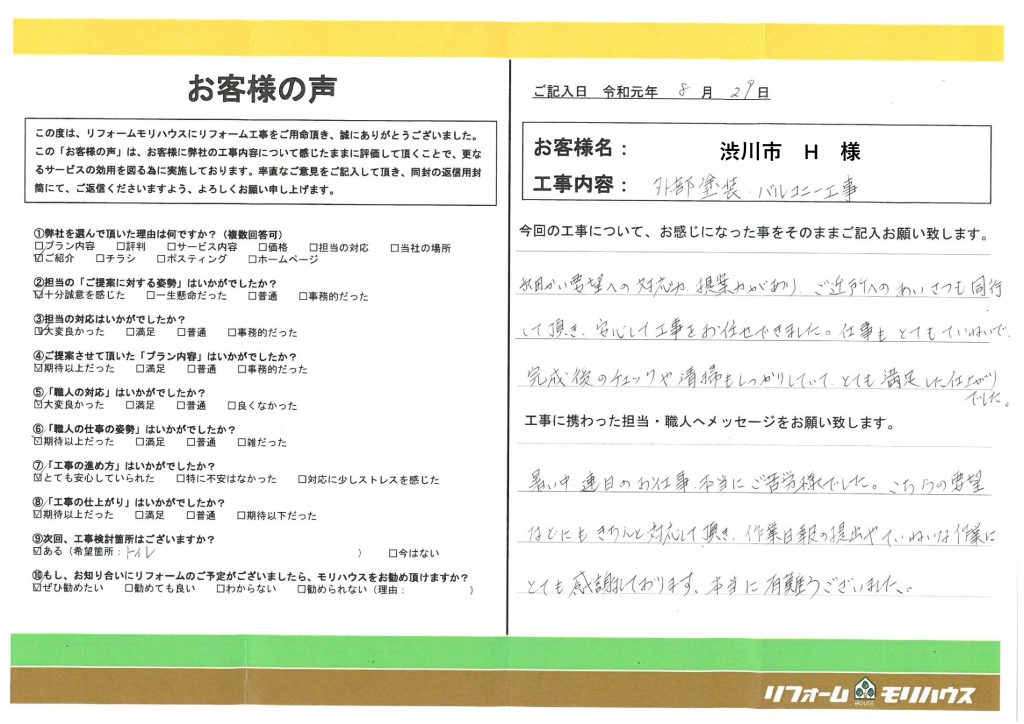 お客様の声
この度は、リフォームモリハウスにリフォーム工事をご用命頂き、誠にありがとうございました。
この「お客様の声」は、お客様に弊社の工事内容について感じたままに評価して頂くことで、更な
るサービスの効用を図る為に実施しております。率直なご意見をご記入して頂き、同封の返信用封
筒にて、ご返信くださいますよう、よろしくお願い申し上げます。
①弊社を選んで頂いた理由は何ですか？（複数回答可）
□プラン内容 □評判 □サービス内容 □価格 □担当の対応 □当社の場所
☑ご紹介 □チラシ □ポスティング □ホームページ
②担当の「ご提案に対する姿勢」はいかがでしたか？
☑十分誠意を感じた □一生懸命だった □普通 □事務的だった
③担当の対応はいかがでしたか？
☑大変良かった □満足 □普通 □事務的だった
④ご提案させて頂いた「プラン内容」はいかがでしたか？
☑期待以上だった □満足 □普通 □事務的だった
⑤「職人の対応」はいかがでしたか？
☑大変良かった □満足 □普通 □良くなかった
⑥「職人の仕事の姿勢」はいかがでしたか？
☑期待以上だった □満足 □普通 □雑だった
⑦「工事の進め方」はいかがでしたか？
☑とても安心していられた □特に不安はなかった □対応に少しストレスを感じた
⑧「工事の仕上がり」はいかがでしたか？
☑期待以上だった □満足 □普通 □期待以下だった
⑨次回、工事検討箇所はございますか？
☑ある（希望箇所：トイレ ） □今はない
⑩もし、お知り合いにリフォームのご予定がございましたら、モリハウスをお勧め頂けますか？
☑ぜひ勧めたい □勧めても良い □わからない □勧められない（理由： ）
ご記入日 令和元年 8 月 29日
お客様名： 渋川市 H 様
工事内容： 外部塗装・バルコニー工事
今回の工事について、お感じになった事をそのままご記入お願い致します。
細かい要望への対応力、提案力があり、ご近所へのあいさつも同行
して頂き、安心して工事をお任せできました。仕事もとてもていねいで、
完成後のチェックや清掃もしっかりしていて、とても満足した仕上がり
でした。
工事に携わった担当・職人へメッセージをお願い致します。
暑い中連日のお仕事、本当にご苦労様でした。こちらの要望
などにもきちんと対応して頂き、作業日報の提出やていねいな作業に
とても感謝しております。本当に有難うございました。
リフォーム HOUSE モリハウス